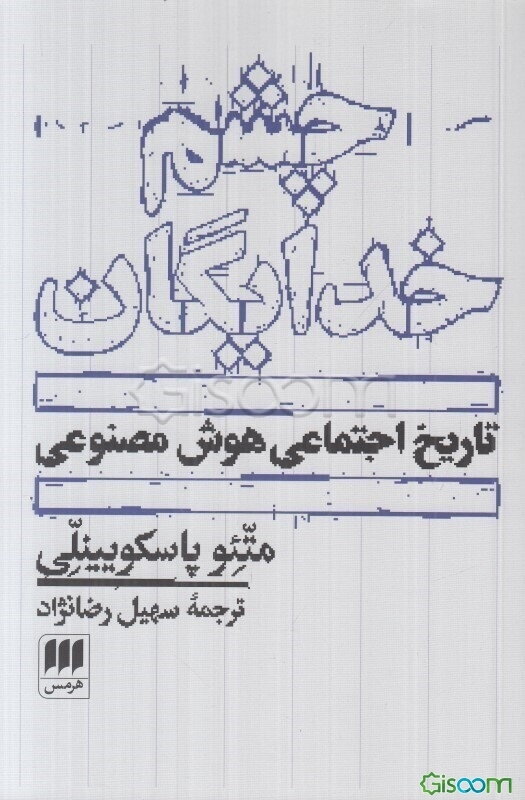 چشم
خدایگان
Gisoom
تاریخ اجتماعی هوش مصنوعی
متّئو پاسکویینلّی
ترجمهٔ سهیل رضانژاد
هرمس
Gisoom